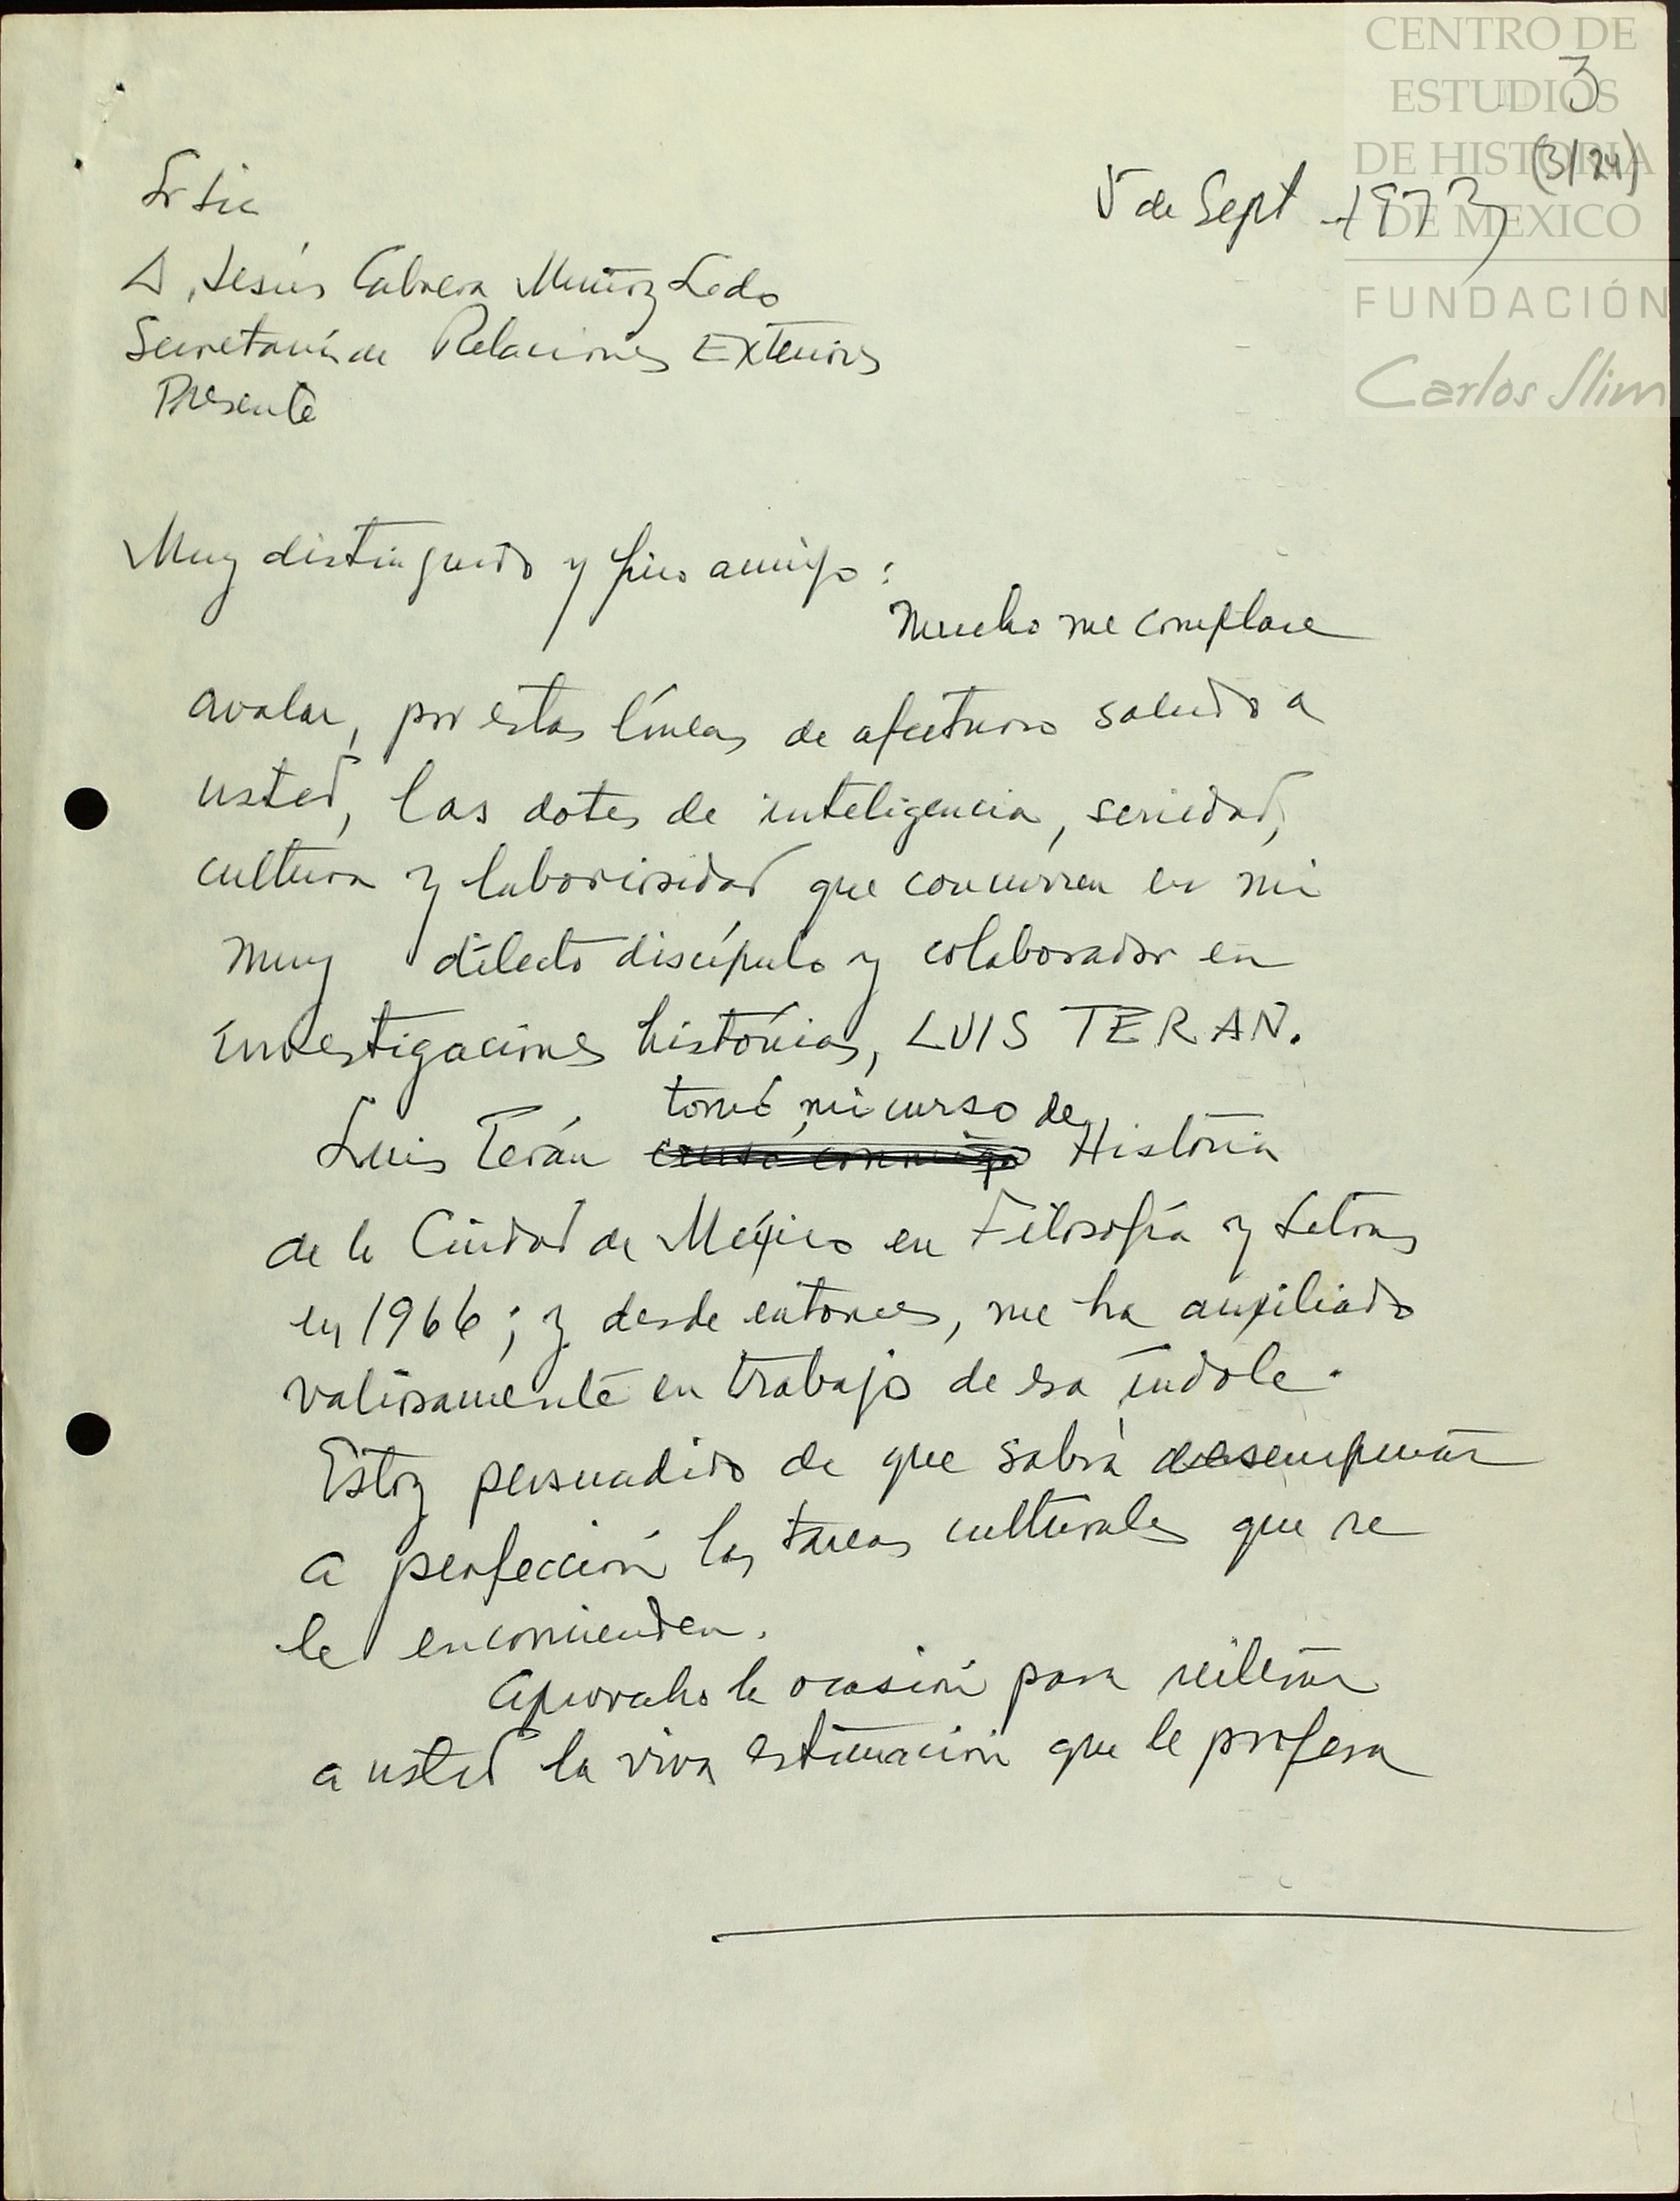 CENTRO DE
ESTUDIOS
DE HISTORIA
DE MEXICO
FUNDACIÓN
Carlos Slim
3
(3/24)
5 de Sept 1973
Sr Lic
D. Jesús Cabrera Muñoz Ledo
Secretaría de Relaciones Exteriores
Presente
Muy distinguido y fino amigo:
Mucho me complace
avalar, por estas líneas de afectuoso saludo a
usted, las dotes de inteligencia, seriedad,
cultura y laboriosidad que concurren en mi
muy dilecto discípulo y colaborador en
investigaciones históricas, LUIS TERAN.
tomó mi curso de
Luis Terán cursó conmigo Historia
de la Ciudad de México en Filosofía y Letras
en 1966; y desde entonces, me ha auxiliado
valiosamente en trabajo de esa índole.
Estoy persuadido de que sabrá desempeñar
a perfección las tareas culturales que se
le encomienden.
Aprovecho la ocasión para reiterar
a usted la viva estimación que le profesa
4